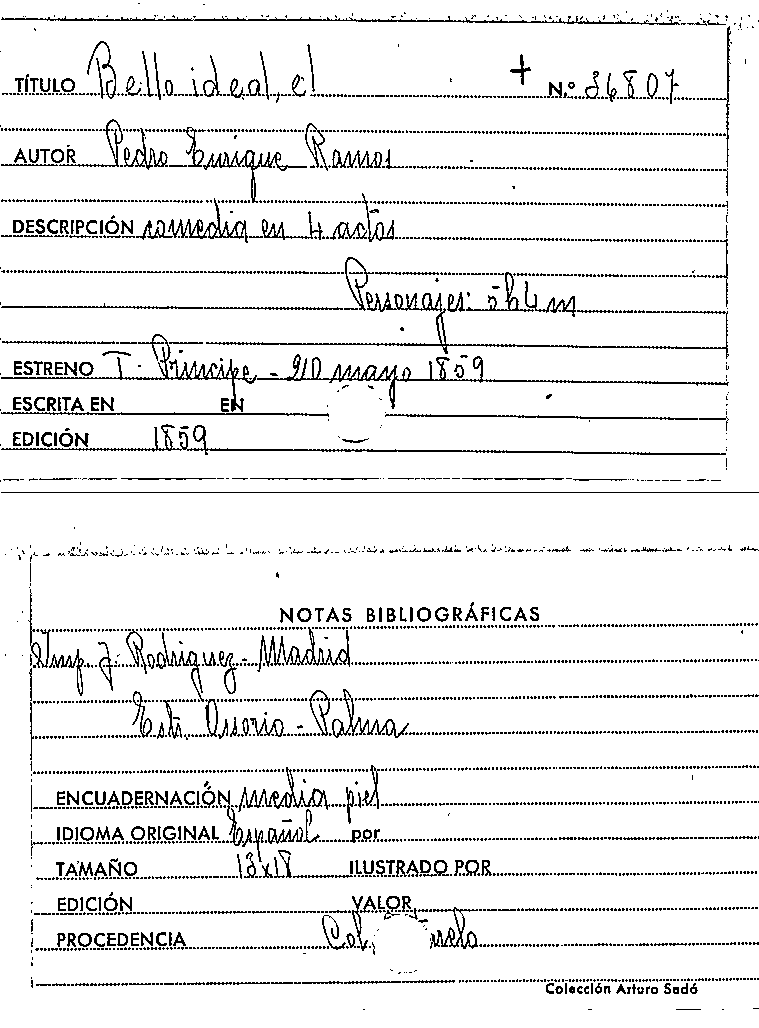 TÍTULO Bello ideal, el + N.º 36807
AUTOR Pedro Enrique Ramos
DESCRIPCIÓN comedia en 4 actos
Personajes: 5h4m
ESTRENO T. Principe - 20 mayo 1859
ESCRITA EN EN
EDICIÓN 1859
NOTAS BIBLIOGRÁFICAS
Imp J. Rodriguez - Madrid
Ests. Ossorio - Palma
ENCUADERNACIÓN media piel
IDIOMA ORIGINAL Español por
TAMAÑO 13x18 ILUSTRADO POR
EDICIÓN VALOR
PROCEDENCIA Col.
Colección Arturo Sedó